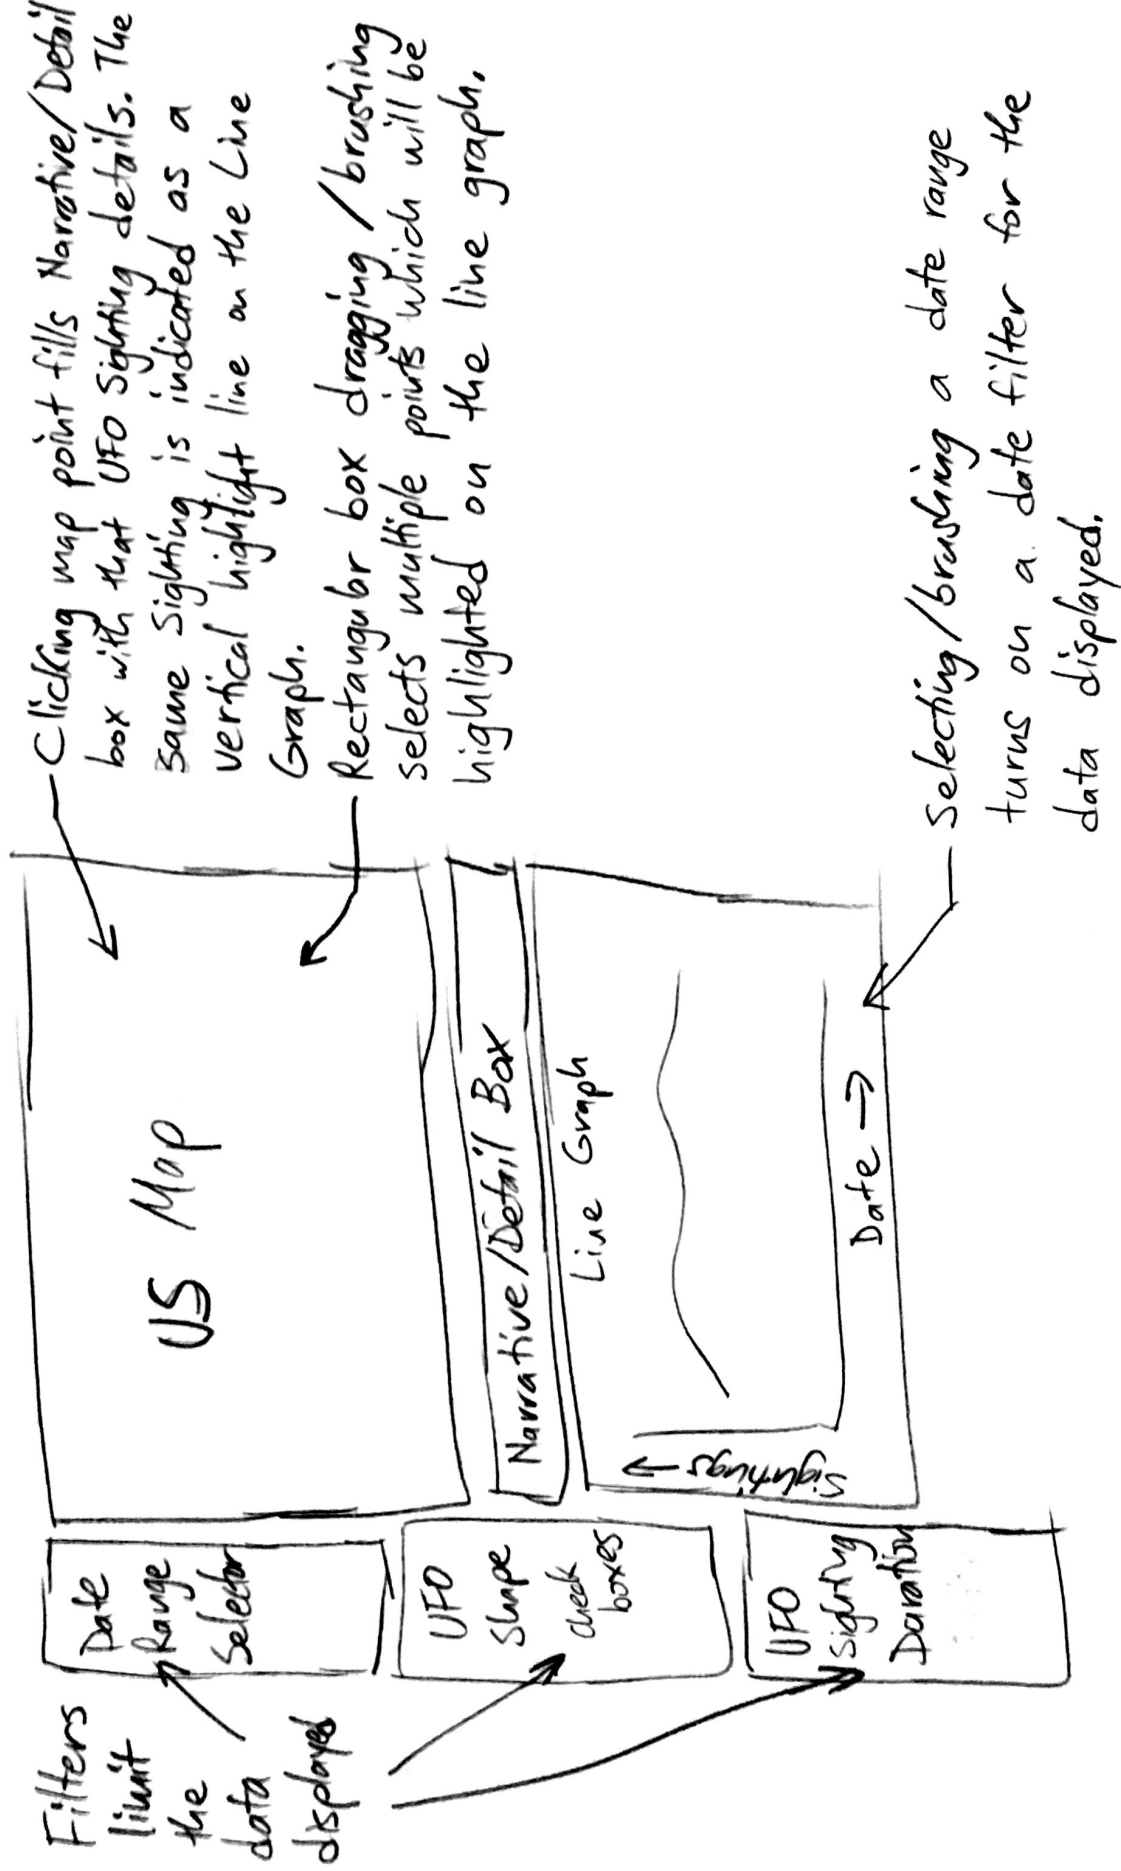 Filters
limit
the
data
displayed
Date
Range
Selector
UFO
Shape
check
boxes
UFO
Sighting
Duration
US Map
Narrative/Detail Box
Line Graph
Sightings →
Date →
Clicking map point fills Narrative/Detail
box with that UFO Sighting details. The
same Sighting is indicated as a
vertical highlight line on the Line
Graph.
Rectangular box dragging/brushing
selects multiple points which will be
highlighted on the line graph.
Selecting/brushing a date range
turns on a date filter for the
data displayed.